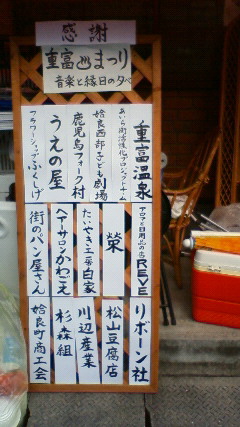 感謝
重富♨まつり
音楽と縁日の夕べ
重富温泉
あいら街活性化プロジェクトチーム
姶良西部子ども劇場
鹿児島フォーク村
うえの屋
フラワーショップふくしげ
アロマと日用品の店 REVE
榮
たいやき工房白家
ヘアサロンかわごえ
街のパン屋さん
リボーン社
松山豆腐店
川辺産業
杉森組
姶良町商工会